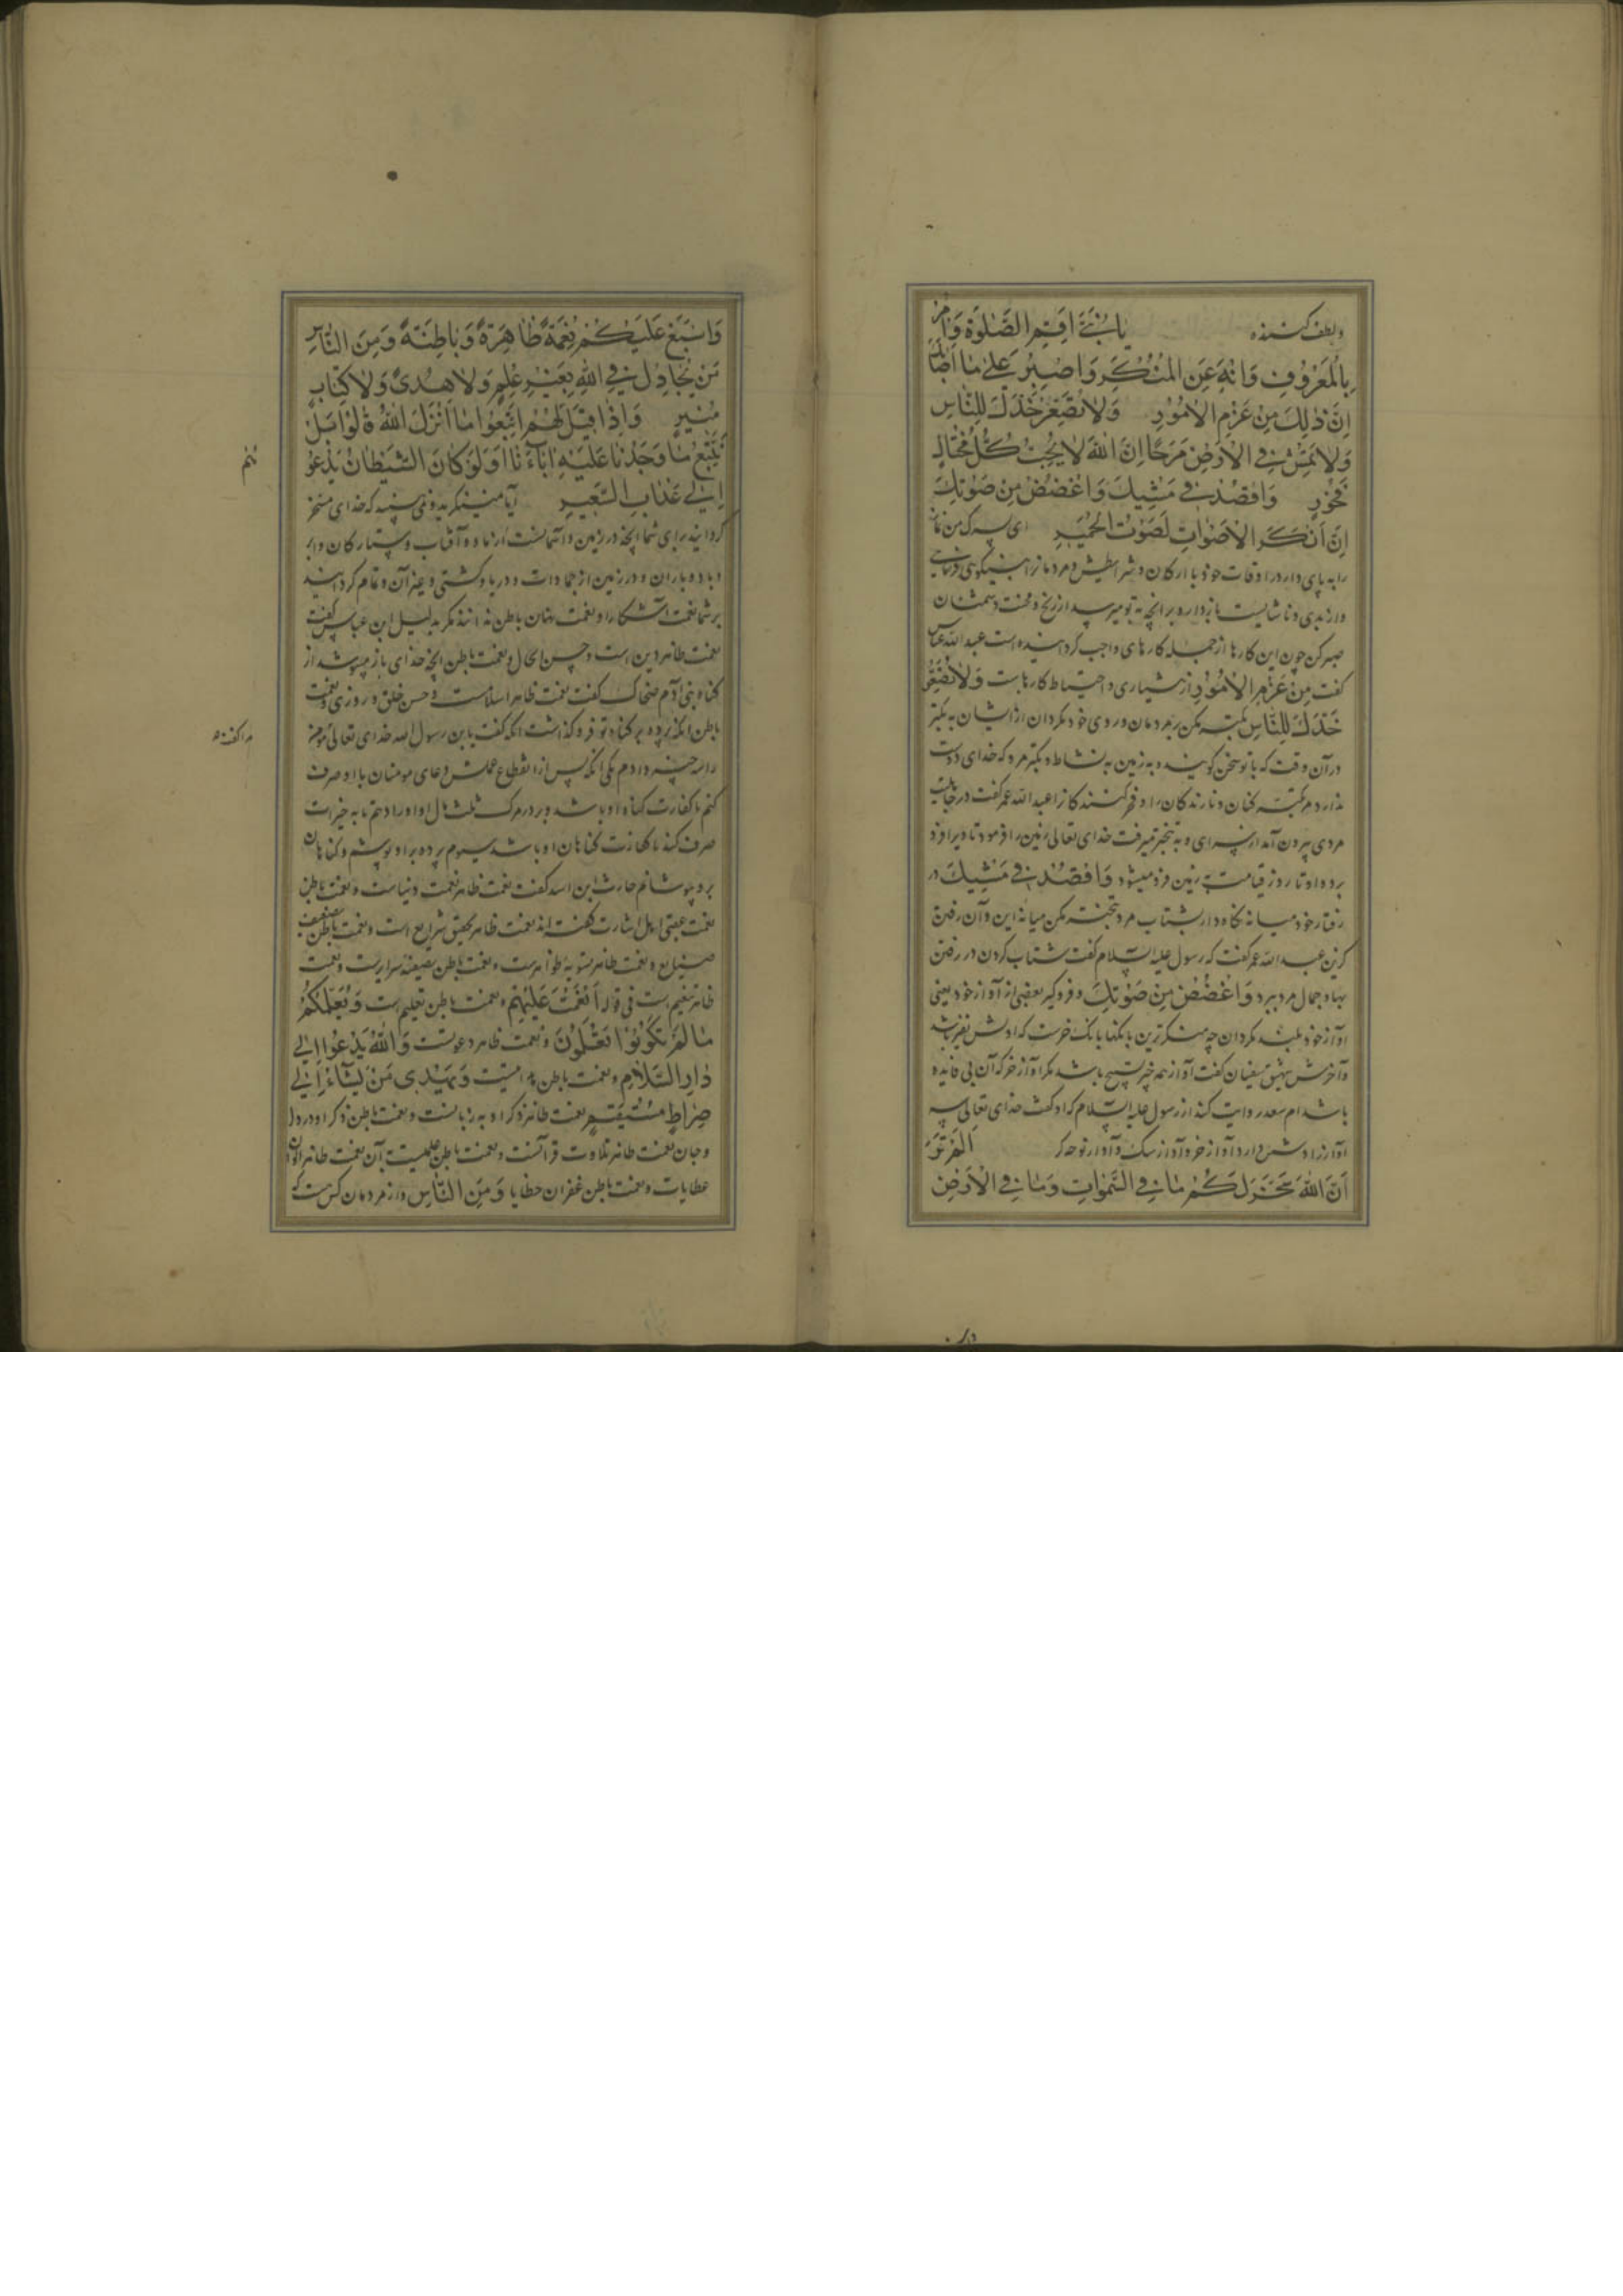 ولطف کننده یا بُنَیَّ اَقِمِ الصَّلٰوةَ وَاْمُرْ
بِالْمَعْرُوفِ وَانْهَ عَنِ الْمُنْكَرِ وَاصْبِرْ عَلٰى مٰا اَصٰابَكَ
اِنَّ ذٰلِكَ مِنْ عَزْمِ الْاُمُوْرِ وَلٰا تُصَعِّرْ خَدَّكَ لِلنّٰاسِ
وَلٰا تَمْشِ فِي الْاَرْضِ مَرَحًا اِنَّ اللّٰهَ لٰا يُحِبُّ كُلَّ مُخْتٰالٍ
فَخُوْرٍ وَاقْصِدْ فِي مَشْيِكَ وَاغْضُضْ مِنْ صَوْتِكَ
اِنَّ اَنْكَرَ الْاَصْوٰاتِ لَصَوْتُ الْحَمِيْرِ ای پسرک من نماز
را به پای دار در اوقات خود با ارکان و شرایطش و مردمانرا به نیکویی فرمای
واز بدی و ناشایست باز دار و بر آنچه به تو میرسد از رنج و محنت و
صبر کن چون این کارها از جمله کارهای واجب گردانیده است عبد الله عباس
گفت مِنْ عَزْمِ الْاُمُوْرِ از هشیاری و احتیاط کارهاست وَلٰا تُصَعِّرْ
خَدَّكَ لِلنّٰاسِ تکبر مکن بر مردمان و روی خود مگردان از ایشان به تکبر
در آن وقت که با تو سخن گویند و به زمین به نشاط و تکبر مرو که خدای دوست
ندارد هر تکبر کنان و نازندگان را و فخر کنندگانرا عبد الله عمر گفت در جاهلیت
مردی بیرون آمد از سرای و به تبختر میرفت خدای تعالی زمین را فرمود تا ویرا فرو
برد و او تا روز قیامت به زمین فرو میشود وَاقْصِدْ فِي مَشْيِكَ در
رفتار خود میانه نگاه دار بشتاب مرو میانه این و آن رفتن
گزین عبد الله عمر گفت که رسول علیه السلام گفت شتاب کردن در رفتن
بهاء و جمال مرد ببرد وَاغْضُضْ مِنْ صَوْتِكَ و فرو گیر بعضی از آواز خود یعنی
آواز خود بلند مگردان چه منکرترین بانگها بانگ خرست که اولش زفیر باشد
و آخرش شهیق سفیان گفت آواز همه چیز تسبیح باشد مگر آواز خر که آن بی فایده
باشد ام سعد روایت کند از رسول علیه السلام که او گفت خدای تعالی سه
آواز را دشمن دارد آواز خر و آواز سگ و آواز نوحه گر اَلَمْ تَرَوْا
اَنَّ اللّٰهَ سَخَّرَ لَكُمْ مٰا فِي السَّمٰوٰاتِ وَمٰا فِي الْاَرْضِ
وَاَسْبَغَ عَلَيْكُمْ نِعْمَةً ظٰاهِرَةً وَبٰاطِنَةً وَمِنَ النّٰاسِ
مَنْ يُجٰادِلُ فِي اللّٰهِ بِغَيْرِ عِلْمٍ وَلٰا هُدًى وَلٰا كِتٰابٍ
مُنِيرٍ وَاِذٰا قِيْلَ لَهُمُ اتَّبِعُوا مٰا اَنْزَلَ اللّٰهُ قٰالُوْا بَلْ
نَتَّبِعُ مٰا وَجَدْنٰا عَلَيْهِ اٰبٰآءَنٰا اَوَلَوْ كٰانَ الشَّيْطٰانُ يَدْعُوْ
اِلٰي عَذٰابِ السَّعِيْرِ آیا می ننگرید و نمی بینید که خدای مسخر
گردانید برای شما آنچه در زمین و آسمانست از ماه و آفتاب و ستارگان و ابر
و باد و باران و در زمین از جمادات و دریا و کشتی و غیر آن و تمام گردانید
بر شما نعمت آشکارا و نعمت پنهان باطن ندانند مگر به دلیل ابن عباس گفت
نعمت ظاهر دین است و حسن الحال و نعمت باطن آنچه خدای باز میپوشد از
گناه بنی آدم ضحاک گفت نعمت ظاهر اسلامست و حسن خلق و روزی و نعمت
باطن آنکه پرده بر گناه تو فرو گذاشت آنکه گفت یا بن رسول الله خدای تعالی مؤمن
را سه چیز دادم یکی آنکه پس از انقطاع عملش دعای مومنان با او صرف
کنم تا کفارت گناه او باشد و بر در مرگ ثلث مال او او را دهم تا به خیرات
صرف کند تا کفارت گناهان او باشد سیوم پرده بر او پوشم و گناهان
برو بپوشانم حارث بن اسد گفت نعمت ظاهر نعمت دنیاست و نعمت باطن
نعمت عقبی اهل اشارت گفته اند نعمت ظاهر تحقیق شرایع است و نعمت باطن
و نعمت ظاهر تسویه ظواهرست و نعمت باطن تصفیه سرایرست و نعمت
ظاهر تنعیم است فی قوله اَنْعَمْتَ عَلَيْهِمْ و نعمت باطن تعلیم است وَيُعَلِّمُكُمْ
مٰا لَمْ تَكُوْنُوْا تَعْلَمُوْنَ و نعمت ظاهر دعوتست وَاللّٰهُ يَدْعُوْا اِلٰي
دٰارِ السَّلٰامِ و نعمت باطن هدایتست وَيَهْدِي مَنْ يَشٰآءُ اِلٰي
صِرٰاطٍ مُسْتَقِيْمٍ نعمت ظاهر ذکر او به زبانست و نعمت باطن ذکر او در دل
و جان نعمت ظاهر تلاوت قرآنست و نعمت باطن آن نعمت ظاهر
عطایاست و نعمت باطن غفران خطایا وَمِنَ النّٰاسِ و از مردمان کس هست که